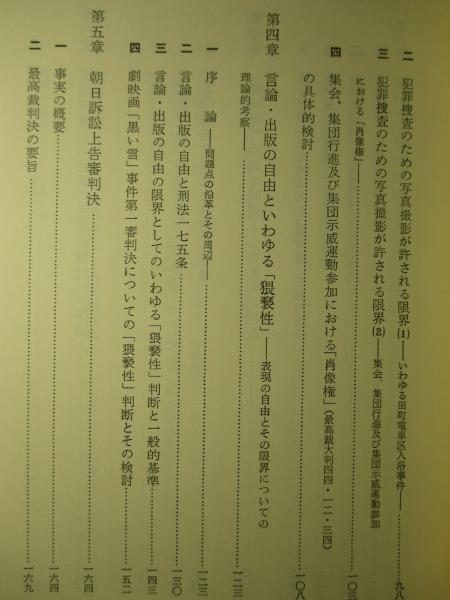 二　犯罪捜査のための写真撮影が許される限界(1)――いわゆる田町電車区入浴事件――……九八
三　犯罪捜査のための写真撮影が許される限界(2)――集会、集団行進及び集団示威運動参加
における「肖像権」――……一〇三
四　集会、集団行進及び集団示威運動参加における「肖像権」(最高裁大判四四・一二・二四)
の具体的検討……一〇八
第四章　言論・出版の自由といわゆる「猥褻性」――表現の自由とその限界についての
理論的考察――……一二三
一　序　論――問題点の沿革とその周辺――……一二三
二　言論・出版の自由と刑法一七五条……一三〇
三　言論・出版の自由の限界としてのいわゆる「猥褻性」判断と一般的基準……一四三
四　劇映画「黒い雪」事件第一審判決についての「猥褻性」判断とその検討……一五二
第五章　朝日訴訟上告審判決……一六四
一　事実の概要……一六四
二　最高裁判決の要旨……一六九